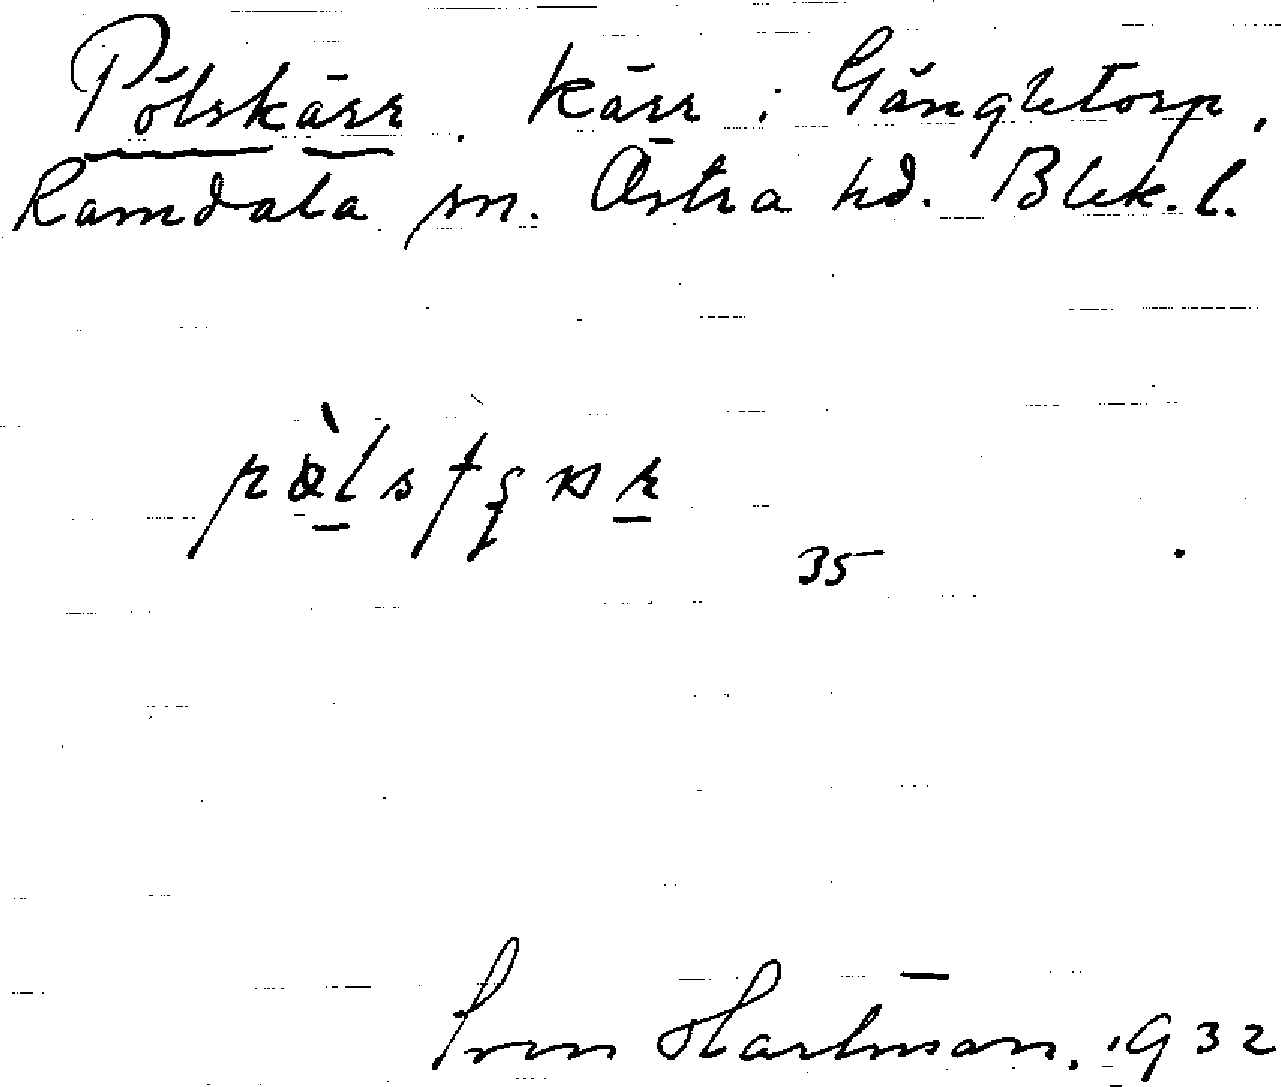 Pölskärr. Kärr i Gängletorp,
Ramdala sn. Östra hd. Blek. l.
35
Sven Hartman. 1932